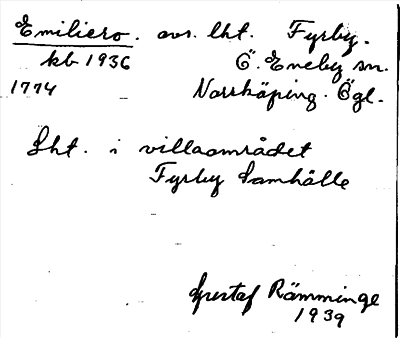 Emiliero. avs. lht. Fyrby.
kb 1936 Ö. Eneby sn.
1774 Norrköping. Ögl.
Lht. i villaområdet
Fyrby samhälle
Gustaf Rämminge
1939